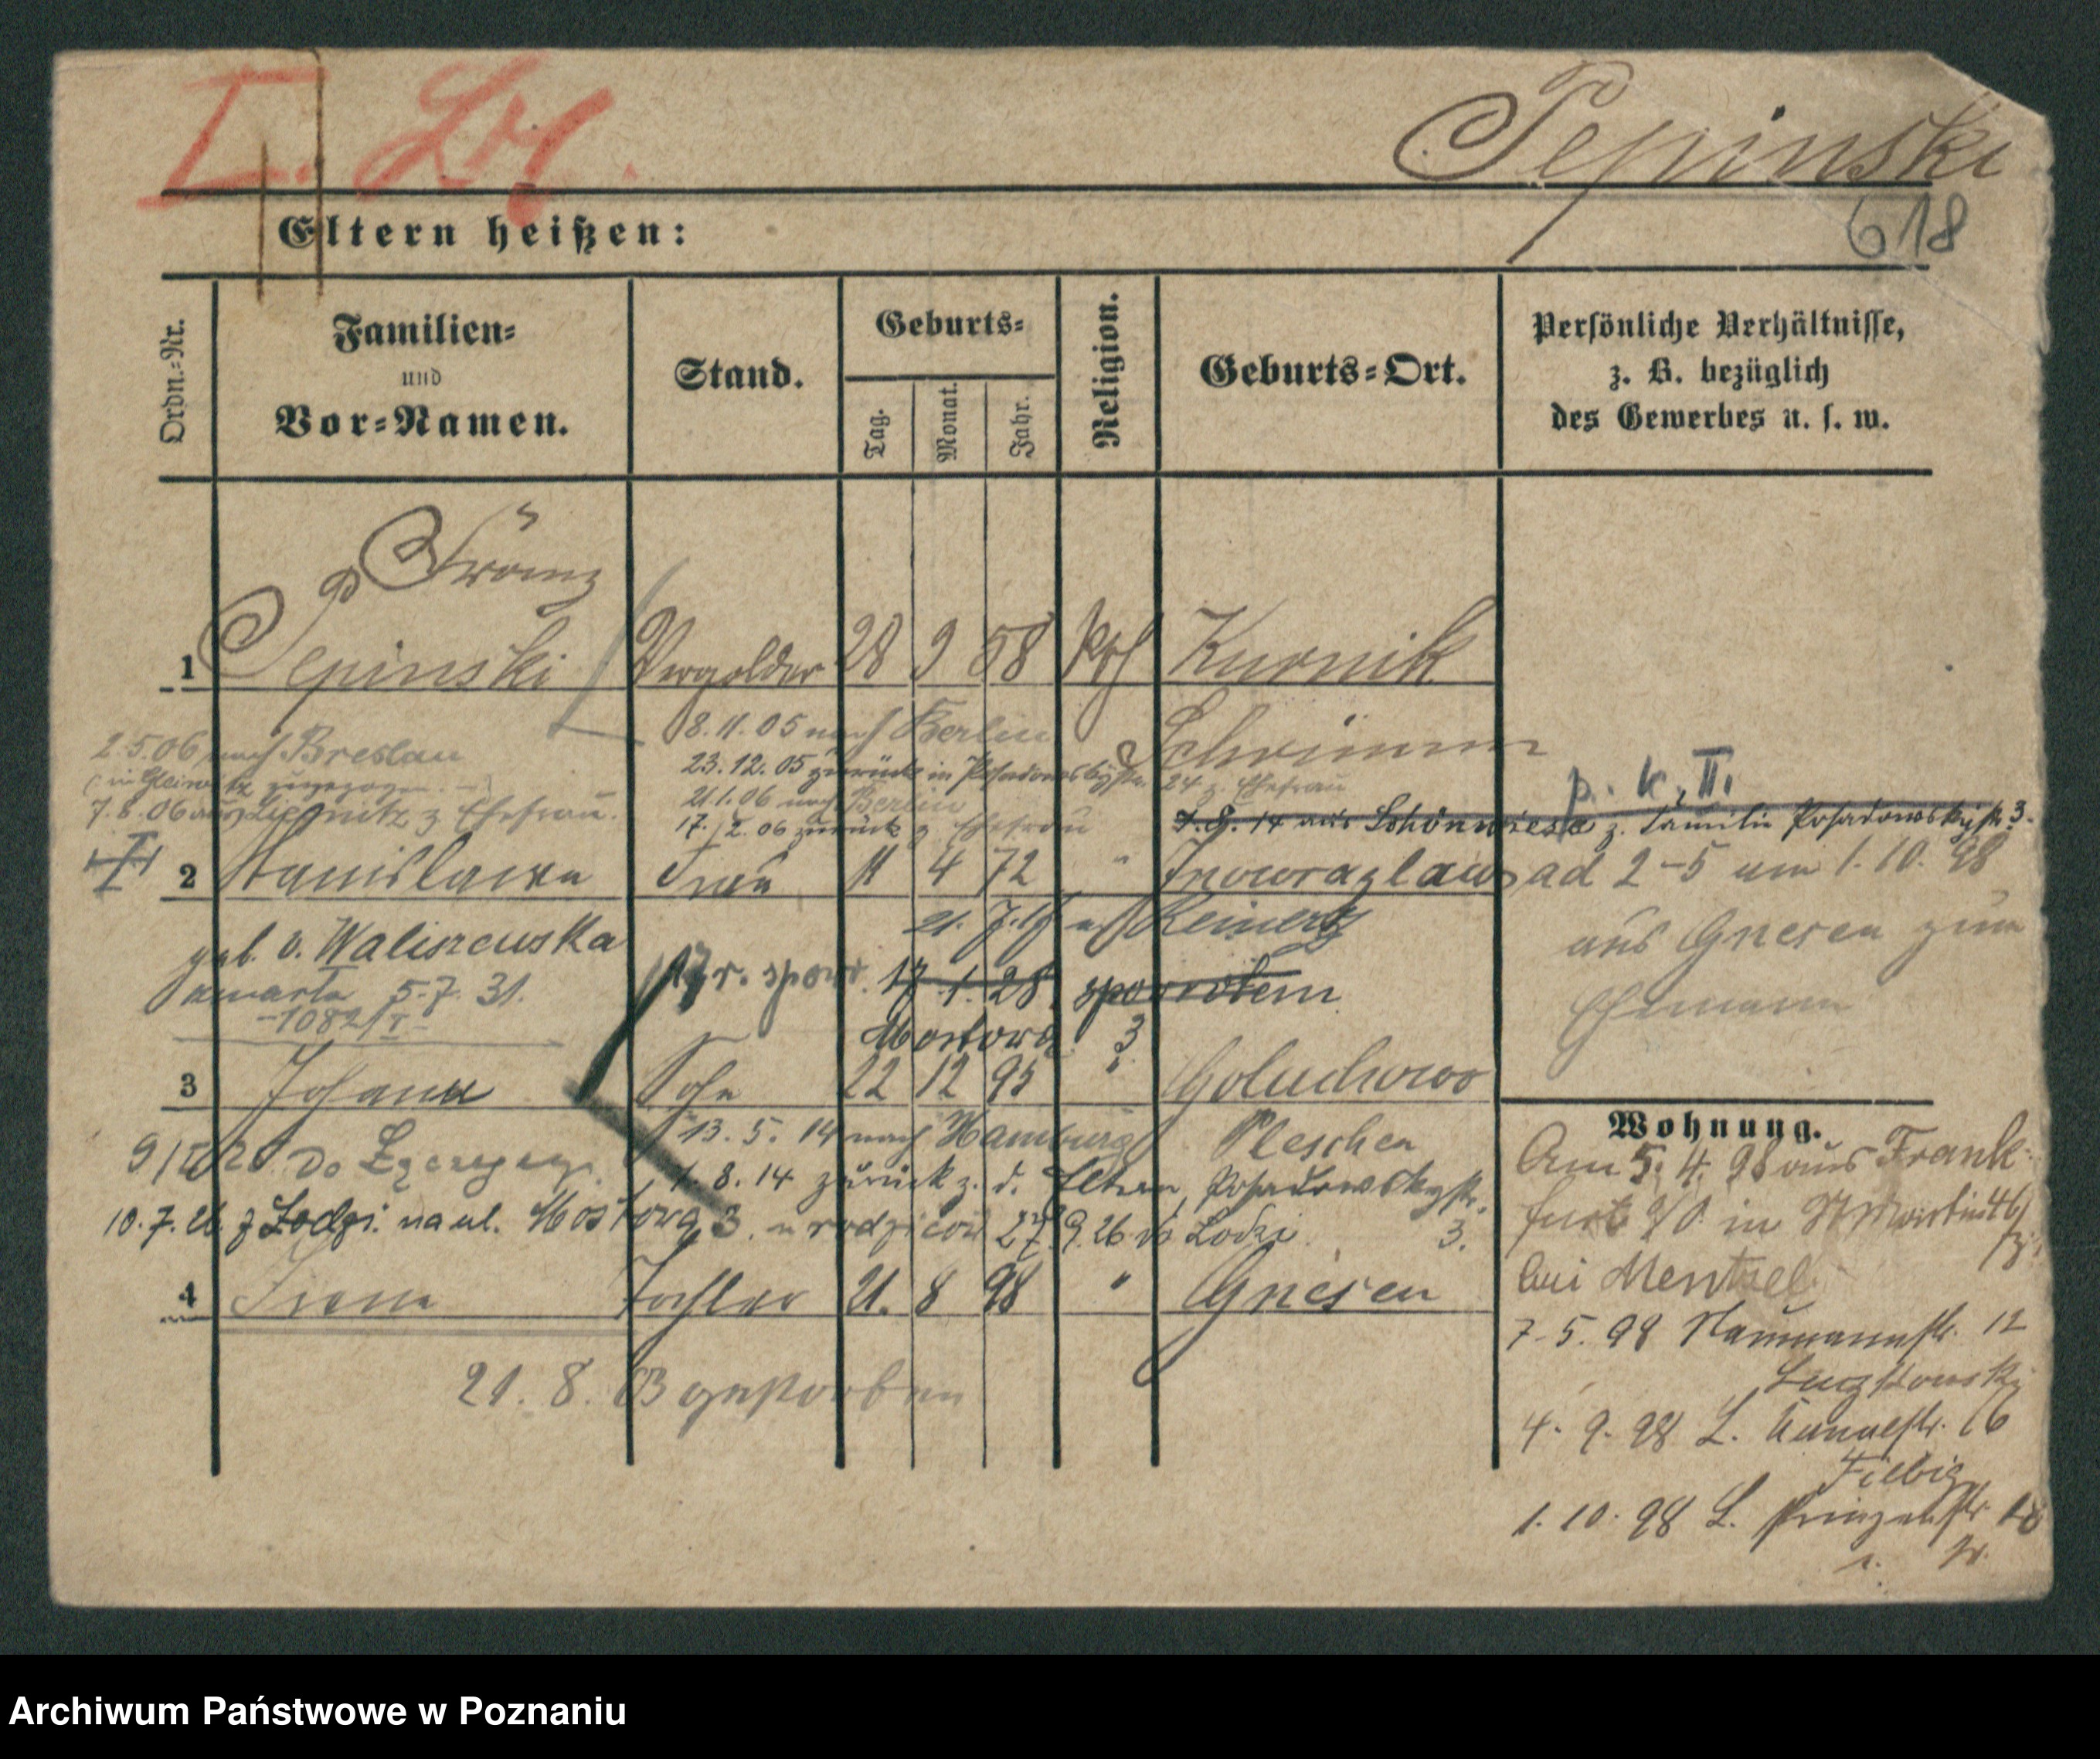 I. Lf.
Pepinski
618
Eltern heißen:
Ordn.-Nr.
Familien-
und
Vor-Namen.
Stand.
Geburts-
Tag.
Monat.
Jahr.
Religion.
Geburts-Ort.
Persönliche Verhältnisse,
z. B. bezüglich
des Gewerbes u. s. w.
Franz
1 Pepinski Vergolder 28 9 58 kth Kurnik
8.11.05 nach Berlin Schrimm
2.5.06 nach Breslau
23.12.05 zurück in Posadowskystr. 24 z. Ehefrau
(in Gleiwitz zugezogen.)
21.1.06 nach Berlin
p. k. II.
7.8.06 aus Liegnitz z Ehefrau.
17./2.06 zurück z. Ehefrau
7.8.14 aus Schönwiese z. Familie Posadowskystr. 3.
2 Stanislawa Frau 11 4 72 " Inowrazlaw
ad 2-5 am 1.10.98
aus Gnesen zum
Ehemann
geb. v. Waliszewska
Reinerz
17.1.28. spowrotem
umarła 5.7.31.
-1082/I-
Mostowa 3
3 Johann Sohn 22 12 95 " Goluchowo
13.5.14 nach Hamburg Pleschen
1.8.14 zurück z. d. Eltern, Posadowskystr. 3.
do Zgorzelca
10.7.26. z Łodzi. na ul. Mostowa 3. u rodziców 27.9.26 do Łodzi.
4 Irena Tochter 21. 8 98 " Gnesen
21.8.03 gestorben
Wohnung.
Am 5.4.98 aus Frank-
furt a/O. in St Martin 46/
bei Mentzel
7.5.98 Naumannstr. 12
4.9.98 L. Kanalstr. 16
Fiebig
1.10.98 L. Prinzenstr. 18